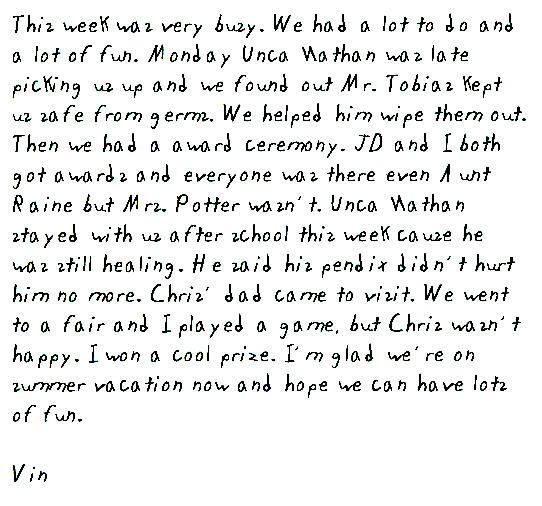 This week was very busy. We had a lot to do and
a lot of fun. Monday Unca Nathan was late
picking us up and we found out Mr. Tobias kept
us safe from germs. We helped him wipe them out.
Then we had a award ceremony. JD and I both
got awards and everyone was there even Aunt
Raine but Mrs. Potter wasn't. Unca Nathan
stayed with us after school this week cause he
was still healing. He said his pendix didn't hurt
him no more. Chris' dad came to visit. We went
to a fair and I played a game, but Chris wasn't
happy. I won a cool prize. I'm glad we're on
summer vacation now and hope we can have lots
of fun.

Vin